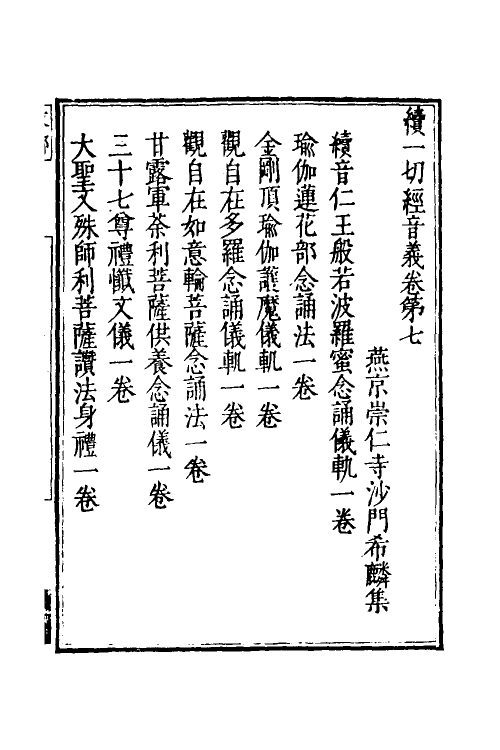 續一切經音義卷第七
燕京崇仁寺沙門希麟集
續音仁王般若波羅蜜念誦儀軌一卷
瑜伽蓮花部念誦法一卷
金剛頂瑜伽護魔儀軌一卷
觀自在多羅念誦儀軌一卷
觀自在如意輪菩薩念誦法一卷
甘露軍荼利菩薩供養念誦儀一卷
三十七尊禮懺文儀一卷
大聖文殊師利菩薩讚法身禮一卷